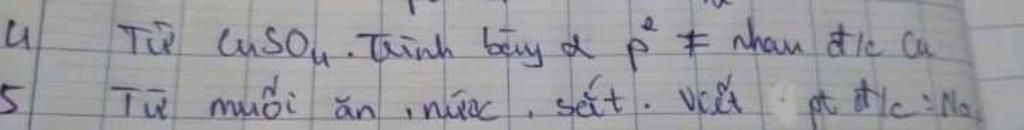 4 Từ CuSO4. Trình bày 2 p² ≠ nhau đ/c Cu
5 Từ muối ăn, nước, sắt. Viết pt đ/c: Na,